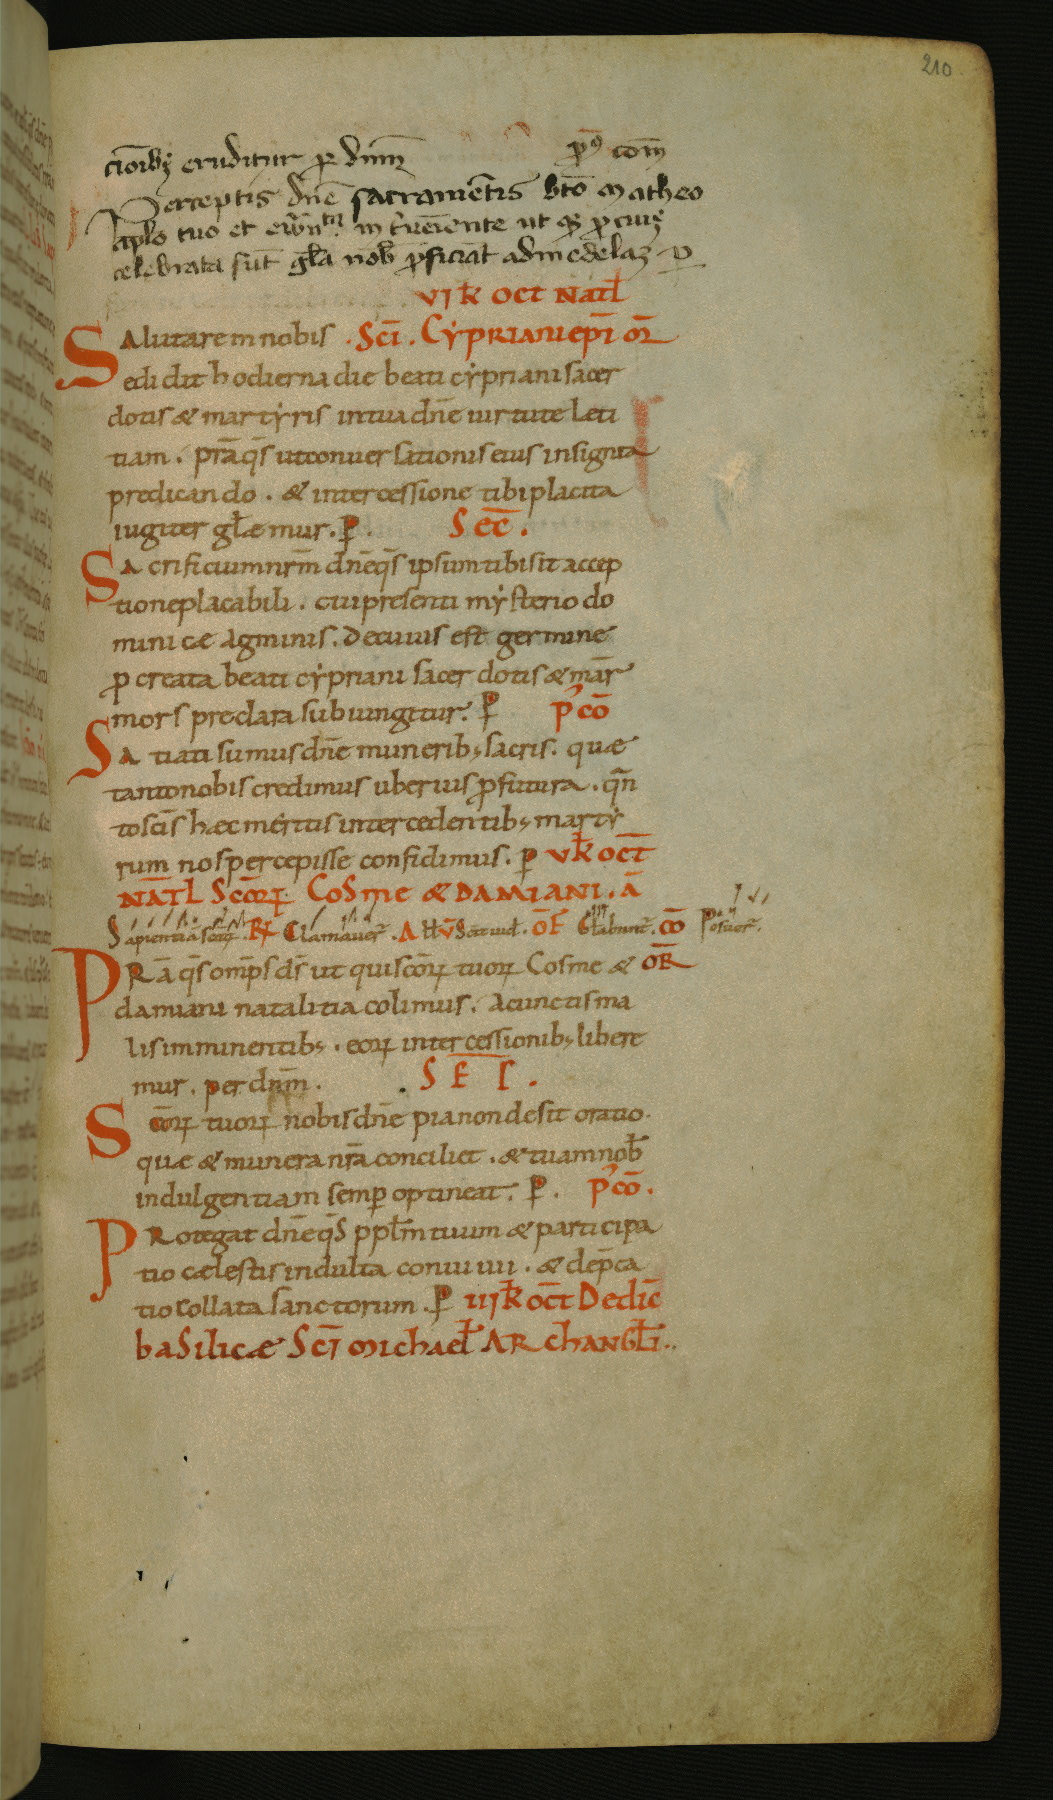 210
cioībꝫ eruditur ꝑ dnm̄ p̄ꝰ com̄
Perceptis dn̄e sacramētis bt̄o Matheo
aplo tuo et ew̄n in t̄ueniente ut q̄s ꝓ cuiꝰ
celebrata sūt gl̄a nob̄ ꝓficiāt ad medelaꝫ ꝑ
VI k̄ OCT NATL̄
Salutarem nobis . SCĪ . CẎPRIANI EPĪ OR̄
edidit hodierna die beati cẏpriani sacer
dotis & martẏris in tua dn̄e uirtute leti
tiam . p̄ra q̄s ut conuersationis eius insignia
predicando . & intercessione tibi placita
iugiter gl̄æmur . ꝑ . SEC̄ .
Sacrificium nr̄m dn̄e q̄s ipsum tibi sit accep
tione placabili . cui presenti mẏsterio do
minicæ agminis . De cuius est germine
ꝓcreata beati cẏpriani sacerdotis & mar̄
mors preclara subiungitur . ꝑ P̕ CŌ
Satiati sumus dn̄e munerib; sacris . quæ
tanto nobis credimus uberius ꝓfutura . q̄n
to sc̄is hæc meritis intercedentib; martẏ
rum nos percepisse confidimus . ꝑ V k̄ OC̄T
NĀTL SCŌRꝜ COSME & DAMIANI . Ā
Sapientiā sc̄orꝝ . R̄ Clamauer̄ . All̄ V̄ Sc̄ti tui d̄ . OF̄ Gl̄abunt̄ . CŌ Posuer̄ .
PRā q̄s omp̄s ds̄ ut qui sc̄orꝝ tuorꝝ Cosme & OR̄
damiani natalitia colimus . A cunctis ma
lis imminentib; . eorꝝ intercessionib; libere
mur . per dnm̄ . SEC .
Sc̄orꝝ tuorꝝ nobis dn̄e pia non desit oratio .
quæ & munera nr̄a conciliet . & tuam nob̄
indulgentiam semꝑ optineat . ꝑ . P̕ CŌ .
PRotegat dn̄e q̄s ppl̄m tuum & participa
tio cælestis indulta conuiuii . & dep̄ca
tio collata sanctorum . ꝑ III k̄ OCT DEDIC̄
BASILICÆ SCĪ MICHAEL̄ ARCHANGL̄I ..